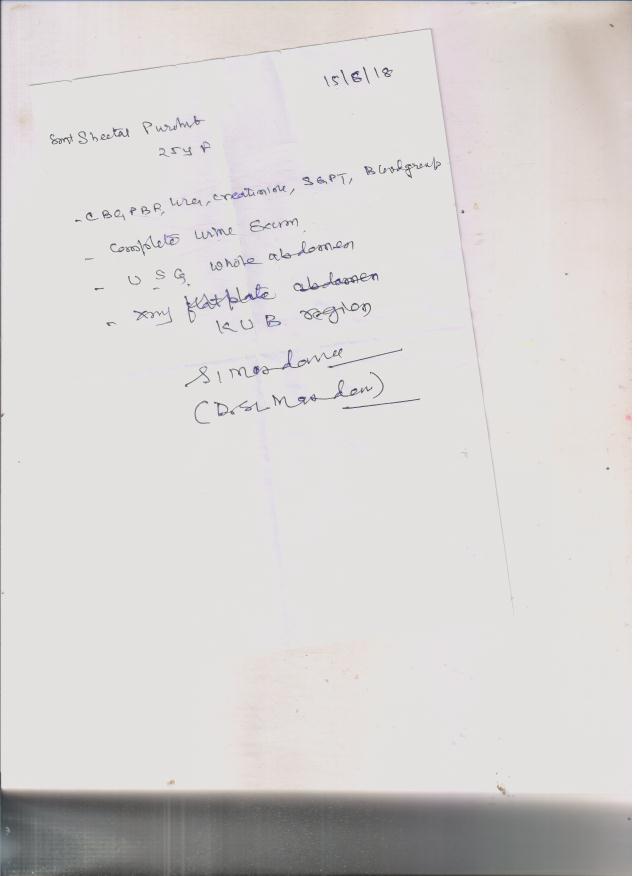 15/8/18
Smt Sheetal Purohit
25y F
- CBG, PBF, Urea, creatinine, SGPT, Bloodgroup
- Complete Urine Exam.
- USG whole abdomen
- Xray flatplate abdomen
KUB region